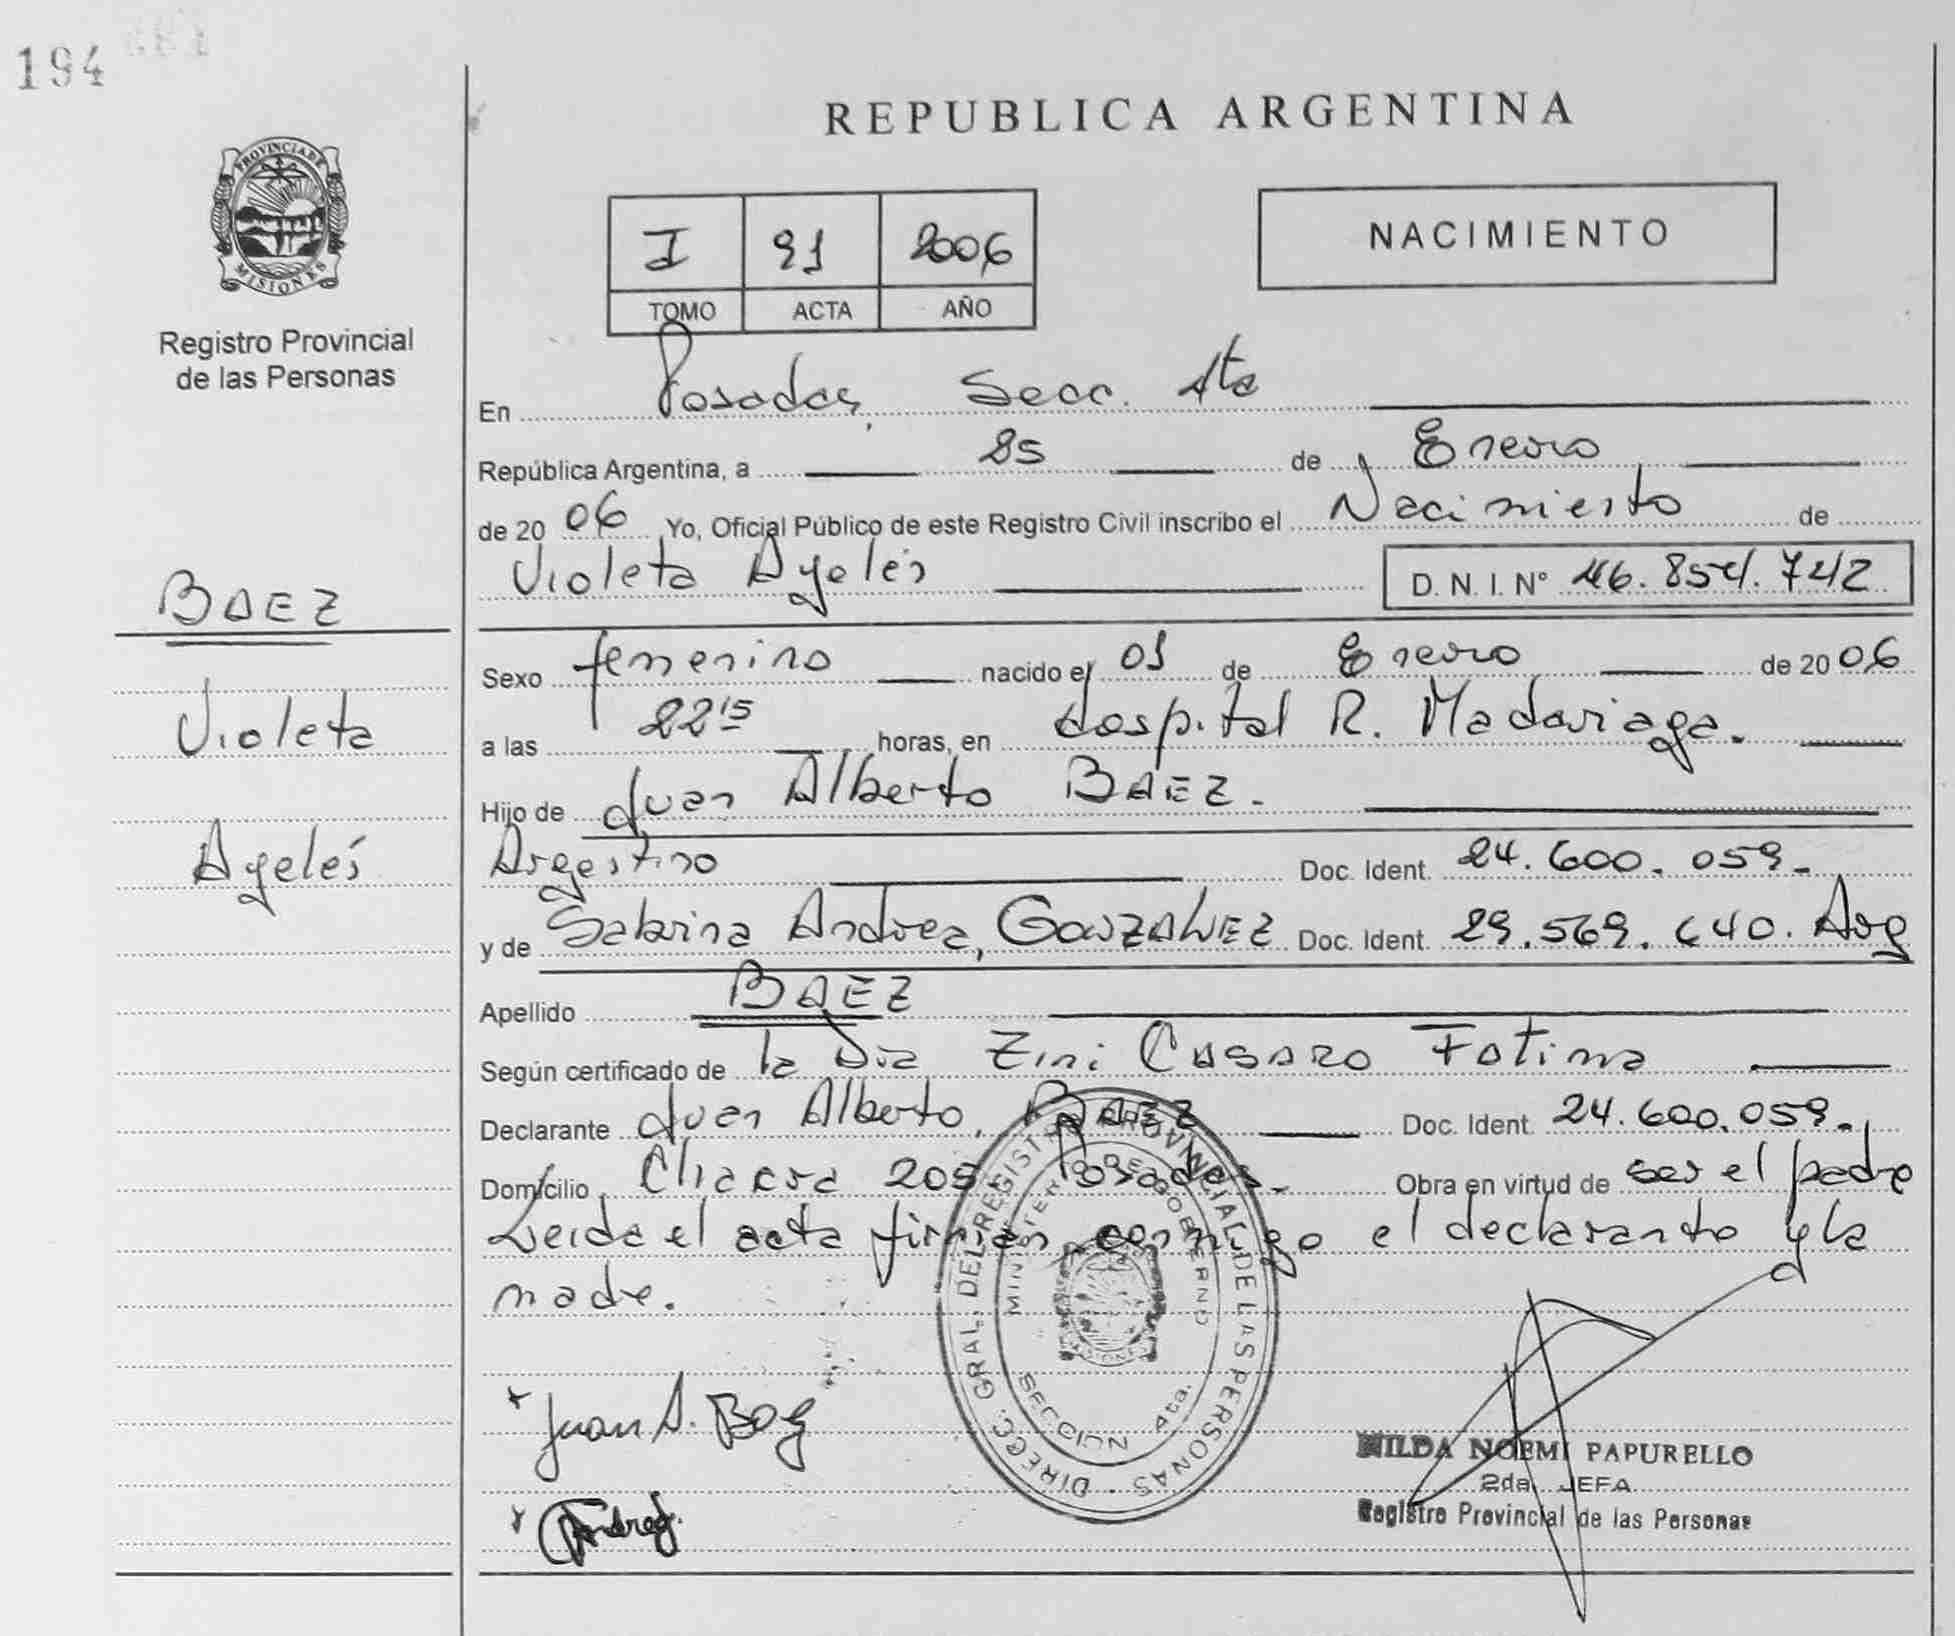 194
PROVINCIA DE
MISIONES
Registro Provincial
de las Personas
BAEZ
Violeta
Ayelén
REPUBLICA ARGENTINA
I 91 2006
TOMO ACTA AÑO
NACIMIENTO
En Posadas, Secc. 4ta
República Argentina, a 25 de Enero
de 20 06 Yo, Oficial Público de este Registro Civil inscribo el Nacimiento de
Violeta Ayelén D. N. I. N° 46.854.742
Sexo femenino nacido el 01 de Enero de 20 06
a las 22 15 horas, en Hospital R. Madariaga.
Hijo de Juan Alberto BAEZ.
Argentino Doc. Ident. 24.600.059.
y de Sabrina Andrea, GONZALEZ Doc. Ident. 29.569.640. Arg
Apellido BAEZ
Según certificado de la Dra Zini Casaro Fatima
Declarante Juan Alberto, BAEZ Doc. Ident. 24.600.059.
Domicilio Chacra 205 Posadas. Obra en virtud de ser el padre
Leida el acta firman conmigo el declarante y la
madre.
DIRECC. GRAL. DEL REGISTRO PROVINCIAL DE LAS PERSONAS
MINISTERIO DE GOBIERNO
SECCION 4ta.
Juan A. Baez
Andrea
HILDA NOEMI PAPURELLO
2da. JEFA
Registro Provincial de las Personas